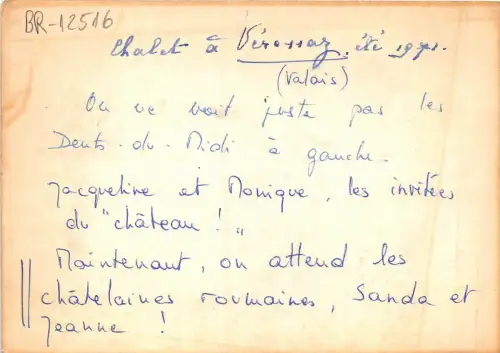 BR-12516
Chalet à Vérossaz, été 1971.
(Valais)
On ne voit juste pas les
Dents-du-Midi à gauche-
Jacqueline et Monique, les invitées
du "château !"
Maintenant, on attend les
châtelaines roumaines, Sanda et
Jeanne !